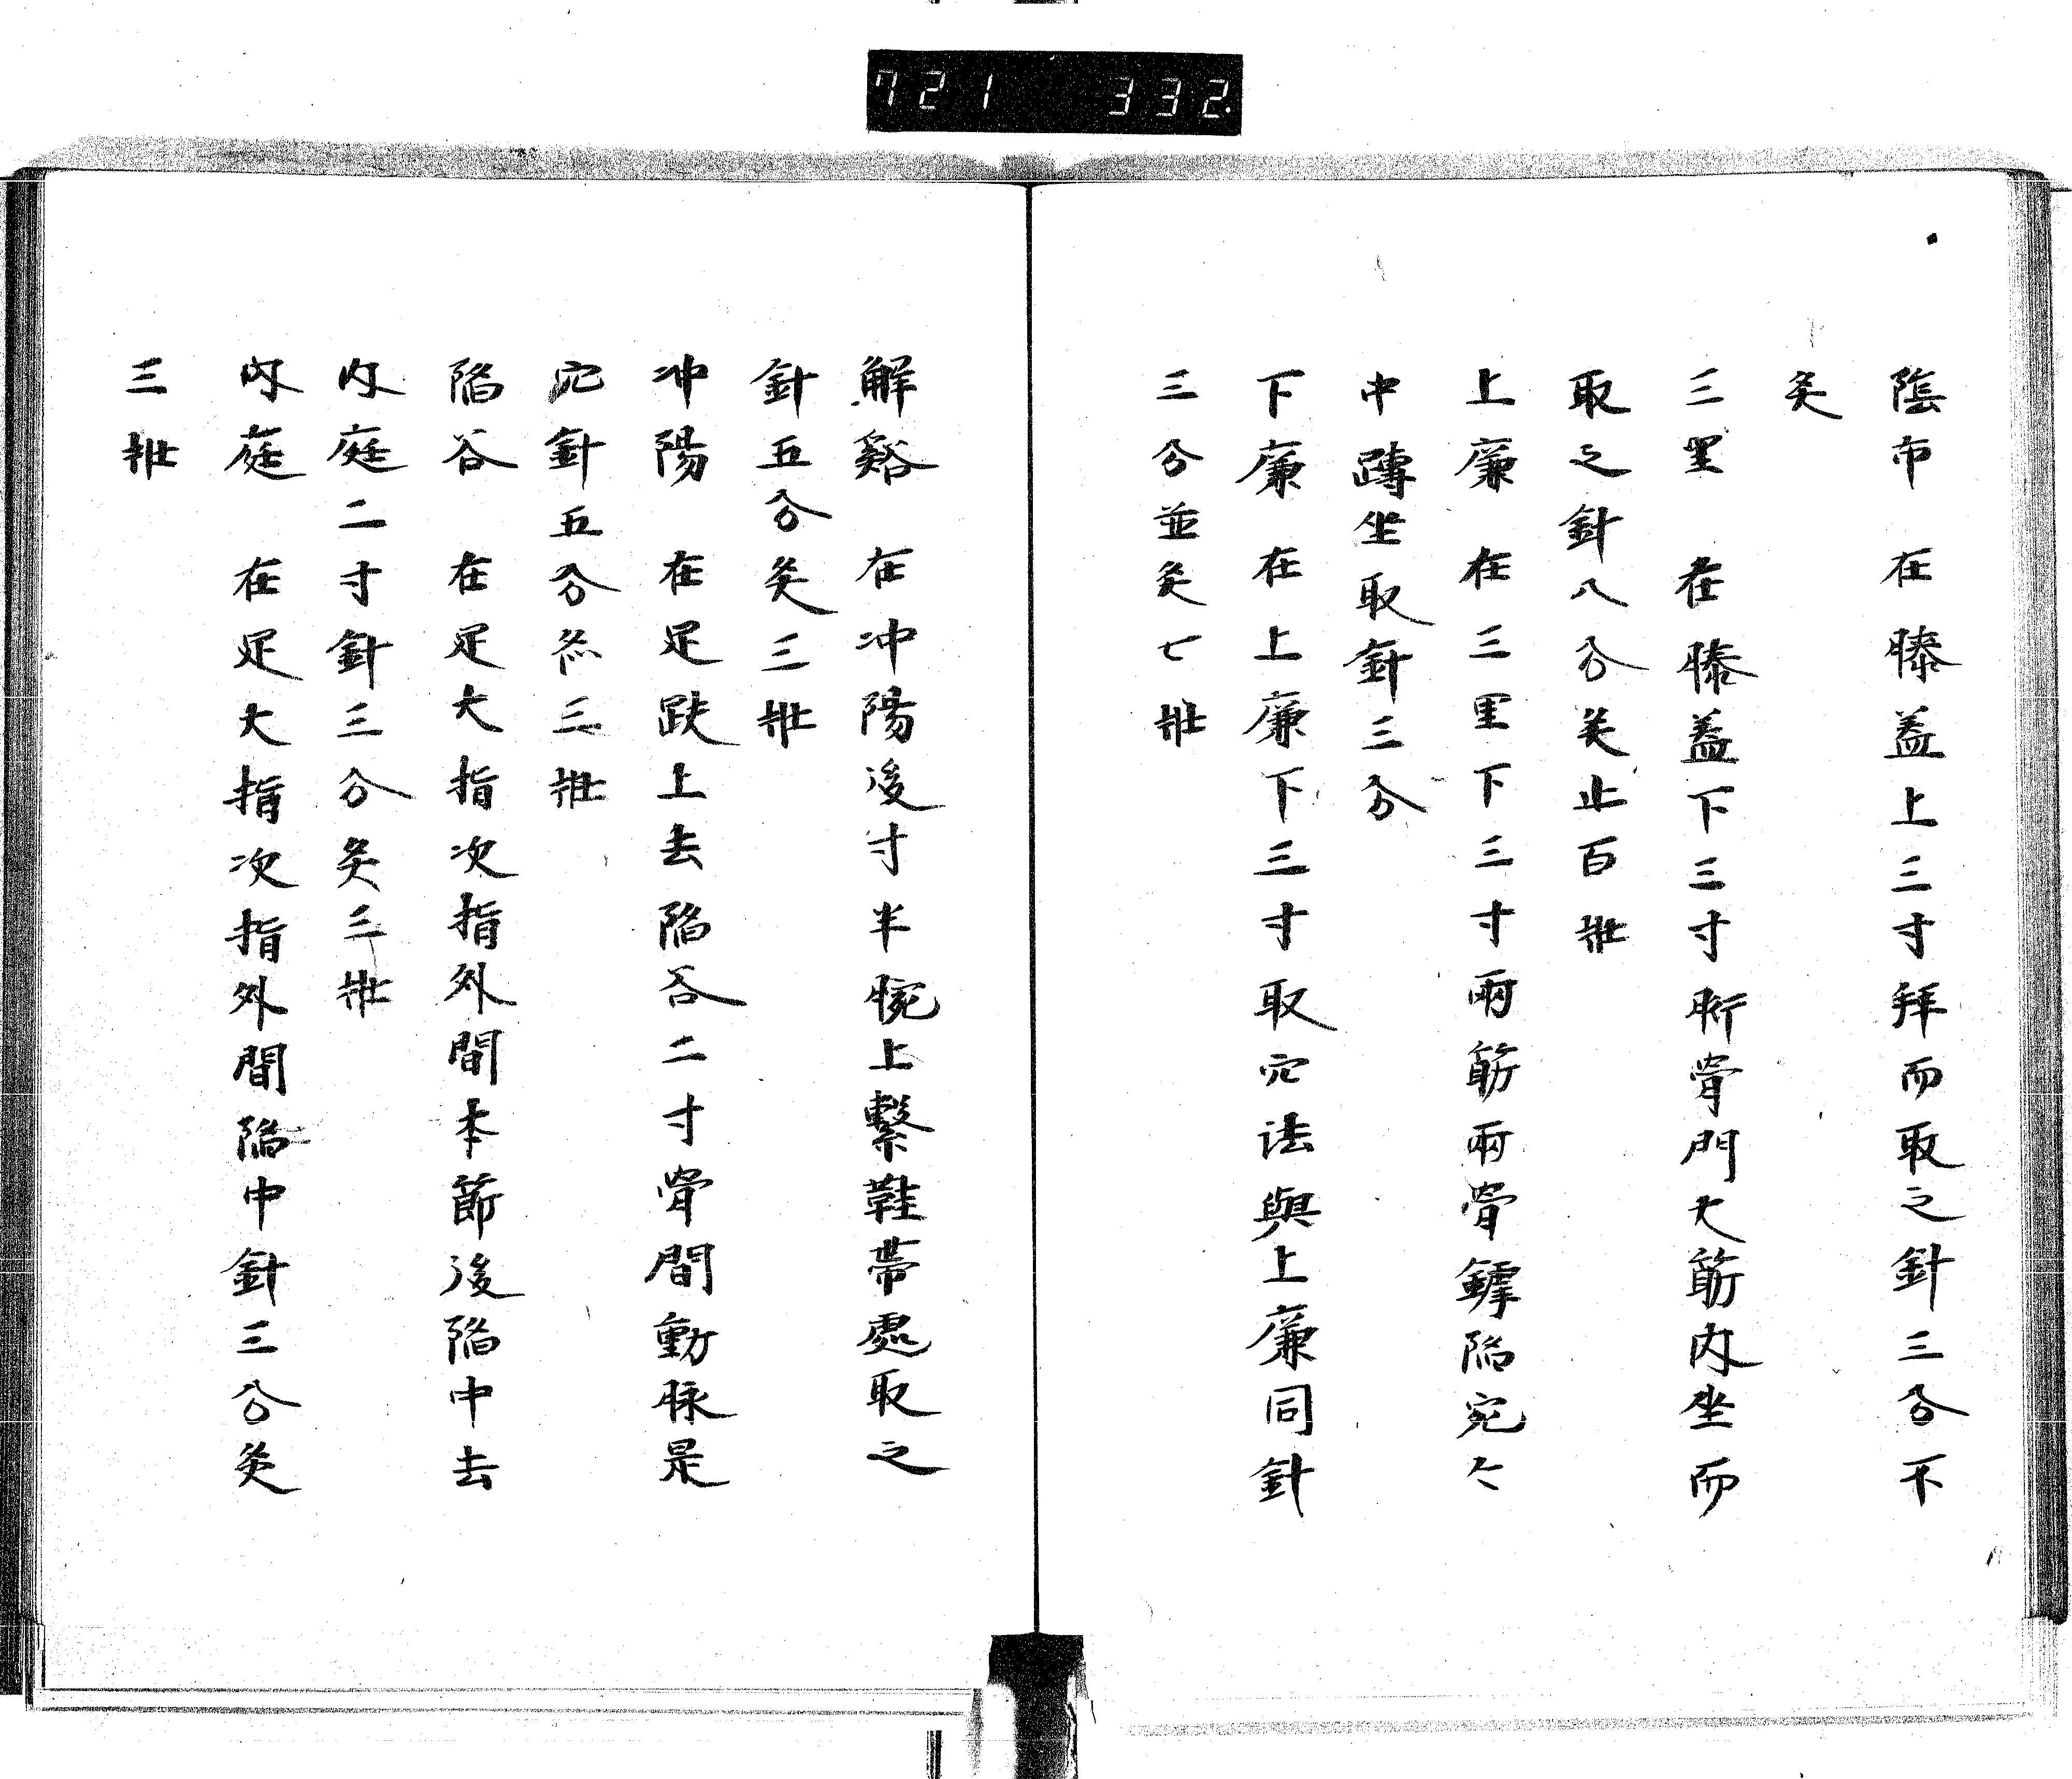 721 332.
陰市 在膝蓋上三寸拜而取之針三分不
灸
三里 在膝蓋下三寸䯒骨門大筋內坐而
取之針八分灸止百壯
上廉 在三里下三寸兩筋兩骨罅陷宛々
中蹲坐取針三分
下廉 在上廉下三寸取穴法與上廉同針
三分並灸七壯
解谿 在冲陽後寸半腕上繫鞋帶處取之
針五分灸三壯
冲陽 在足趺上去陷谷二寸骨間動脉是
穴針五分灸三壯
陷谷 在足大指次指外間本節後陷中去
內庭二寸針三分灸三壯
內庭 在足大指次指外間陷中針三分灸
三壯